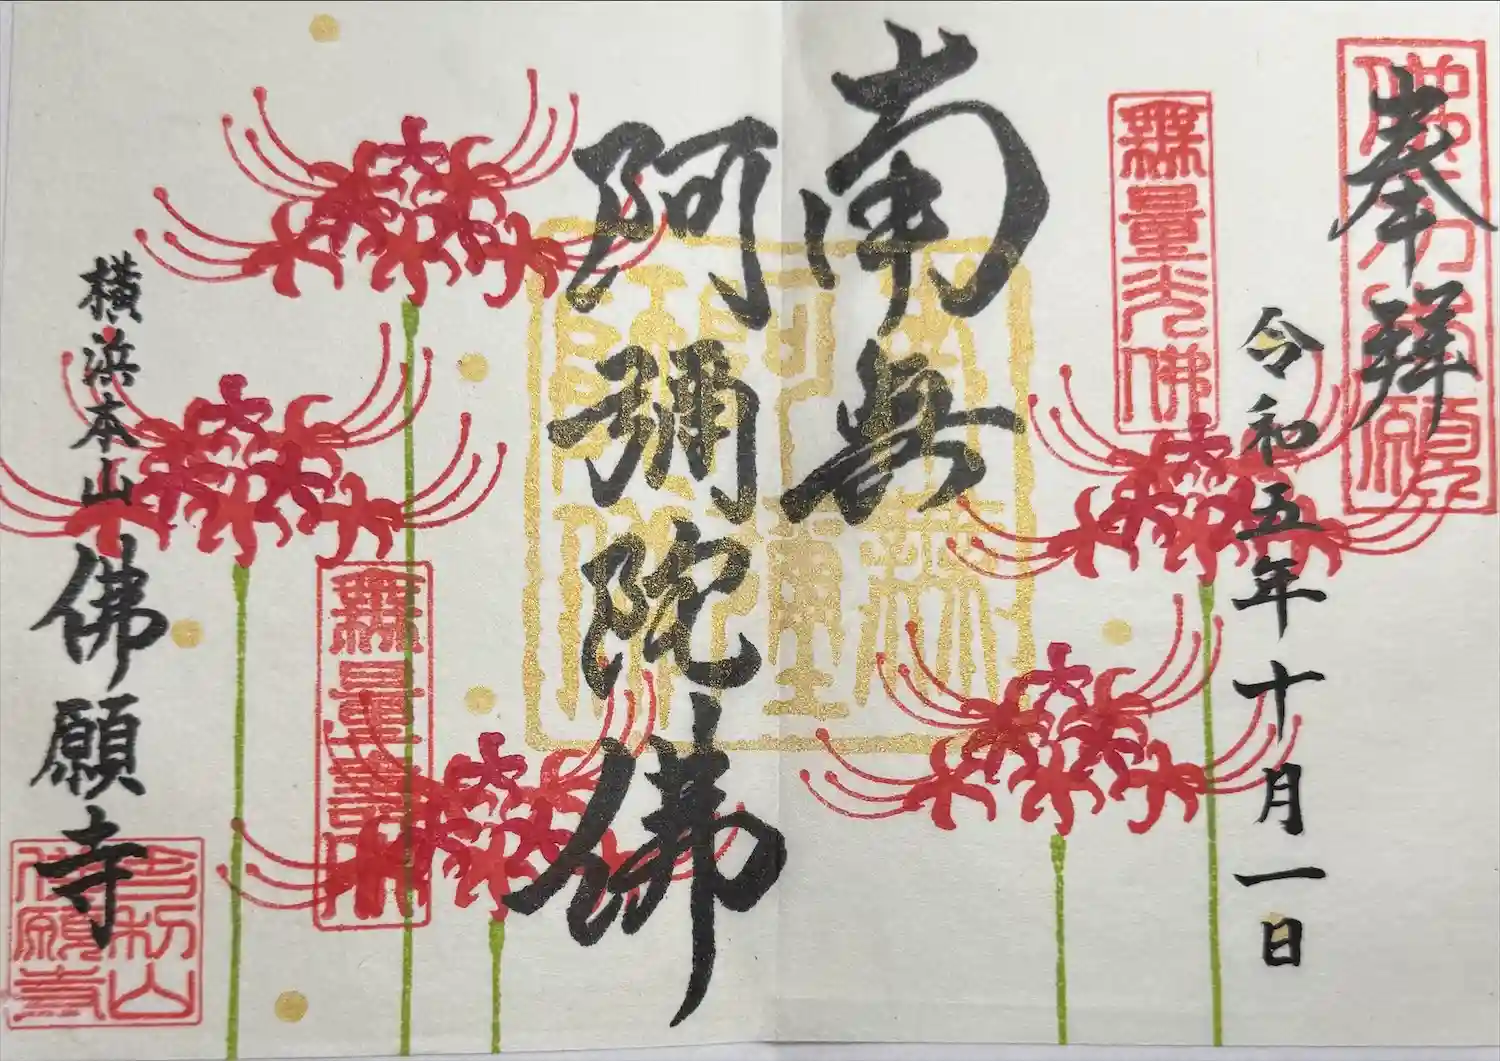 奉拜
佛力本願
令和五年十月一日
無量光佛
南無
阿彌陀佛
無量壽佛
横浜本山佛願寺